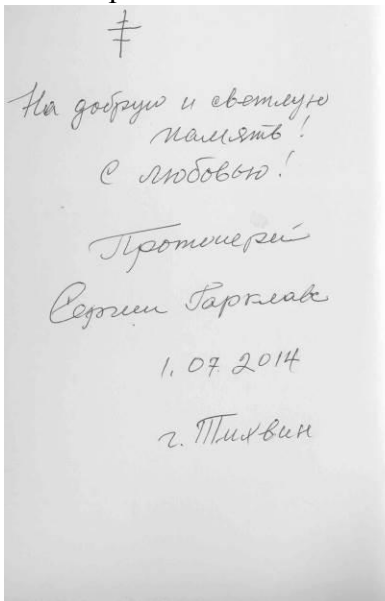 На добрую и светлую
память!
С любовью!
Протоиерей
Сергий Гарклавс
1.07.2014
г. Тихвин